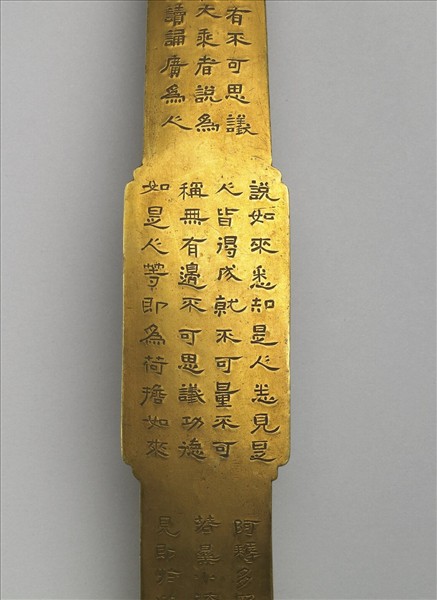 有不可思議
大乘者說為
讀誦廣為人
說如來悉知是人悉見是
人皆得成就不可量不可
稱無有邊不可思議功德
如是人等即為荷擔如來
阿耨多
若樂小
見即於